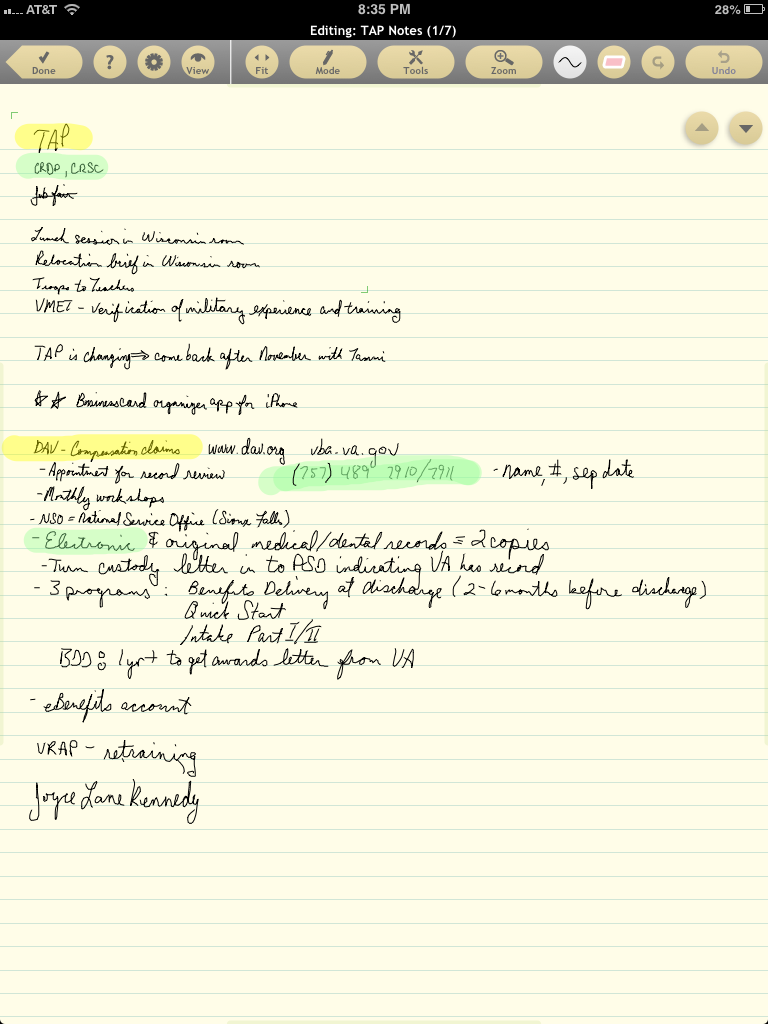 AT&T 8:35 PM 28%
Editing: TAP Notes (1/7)
Done ? View Fit Mode Tools Zoom Undo
TAP
CRDP, CRSC
Job fair
Lunch session in Wisconsin room
Relocation brief in Wisconsin room
Troops to Teachers
VMET - verification of military experience and training
TAP is changing ⇒ come back after November with Tammi
☆☆ Business card organizer app for iPhone
DAV - Compensation claims www.dav.org vba.va.gov
- Appointment for record review (757) 489 7910/7911 - name, #, sep date
- Monthly workshops
- NSO = National Service Office (Sioux Falls)
- Electronic & original medical/dental records = 2 copies
- Turn custody letter in to PSD indicating VA has record
- 3 programs: Benefits Delivery at discharge (2-6 months before discharge)
Quick Start
Intake Part I/II
BDD: 1yr+ to get awards letter from VA
- eBenefits account
VRAP - retraining
Joyce Lane Kennedy